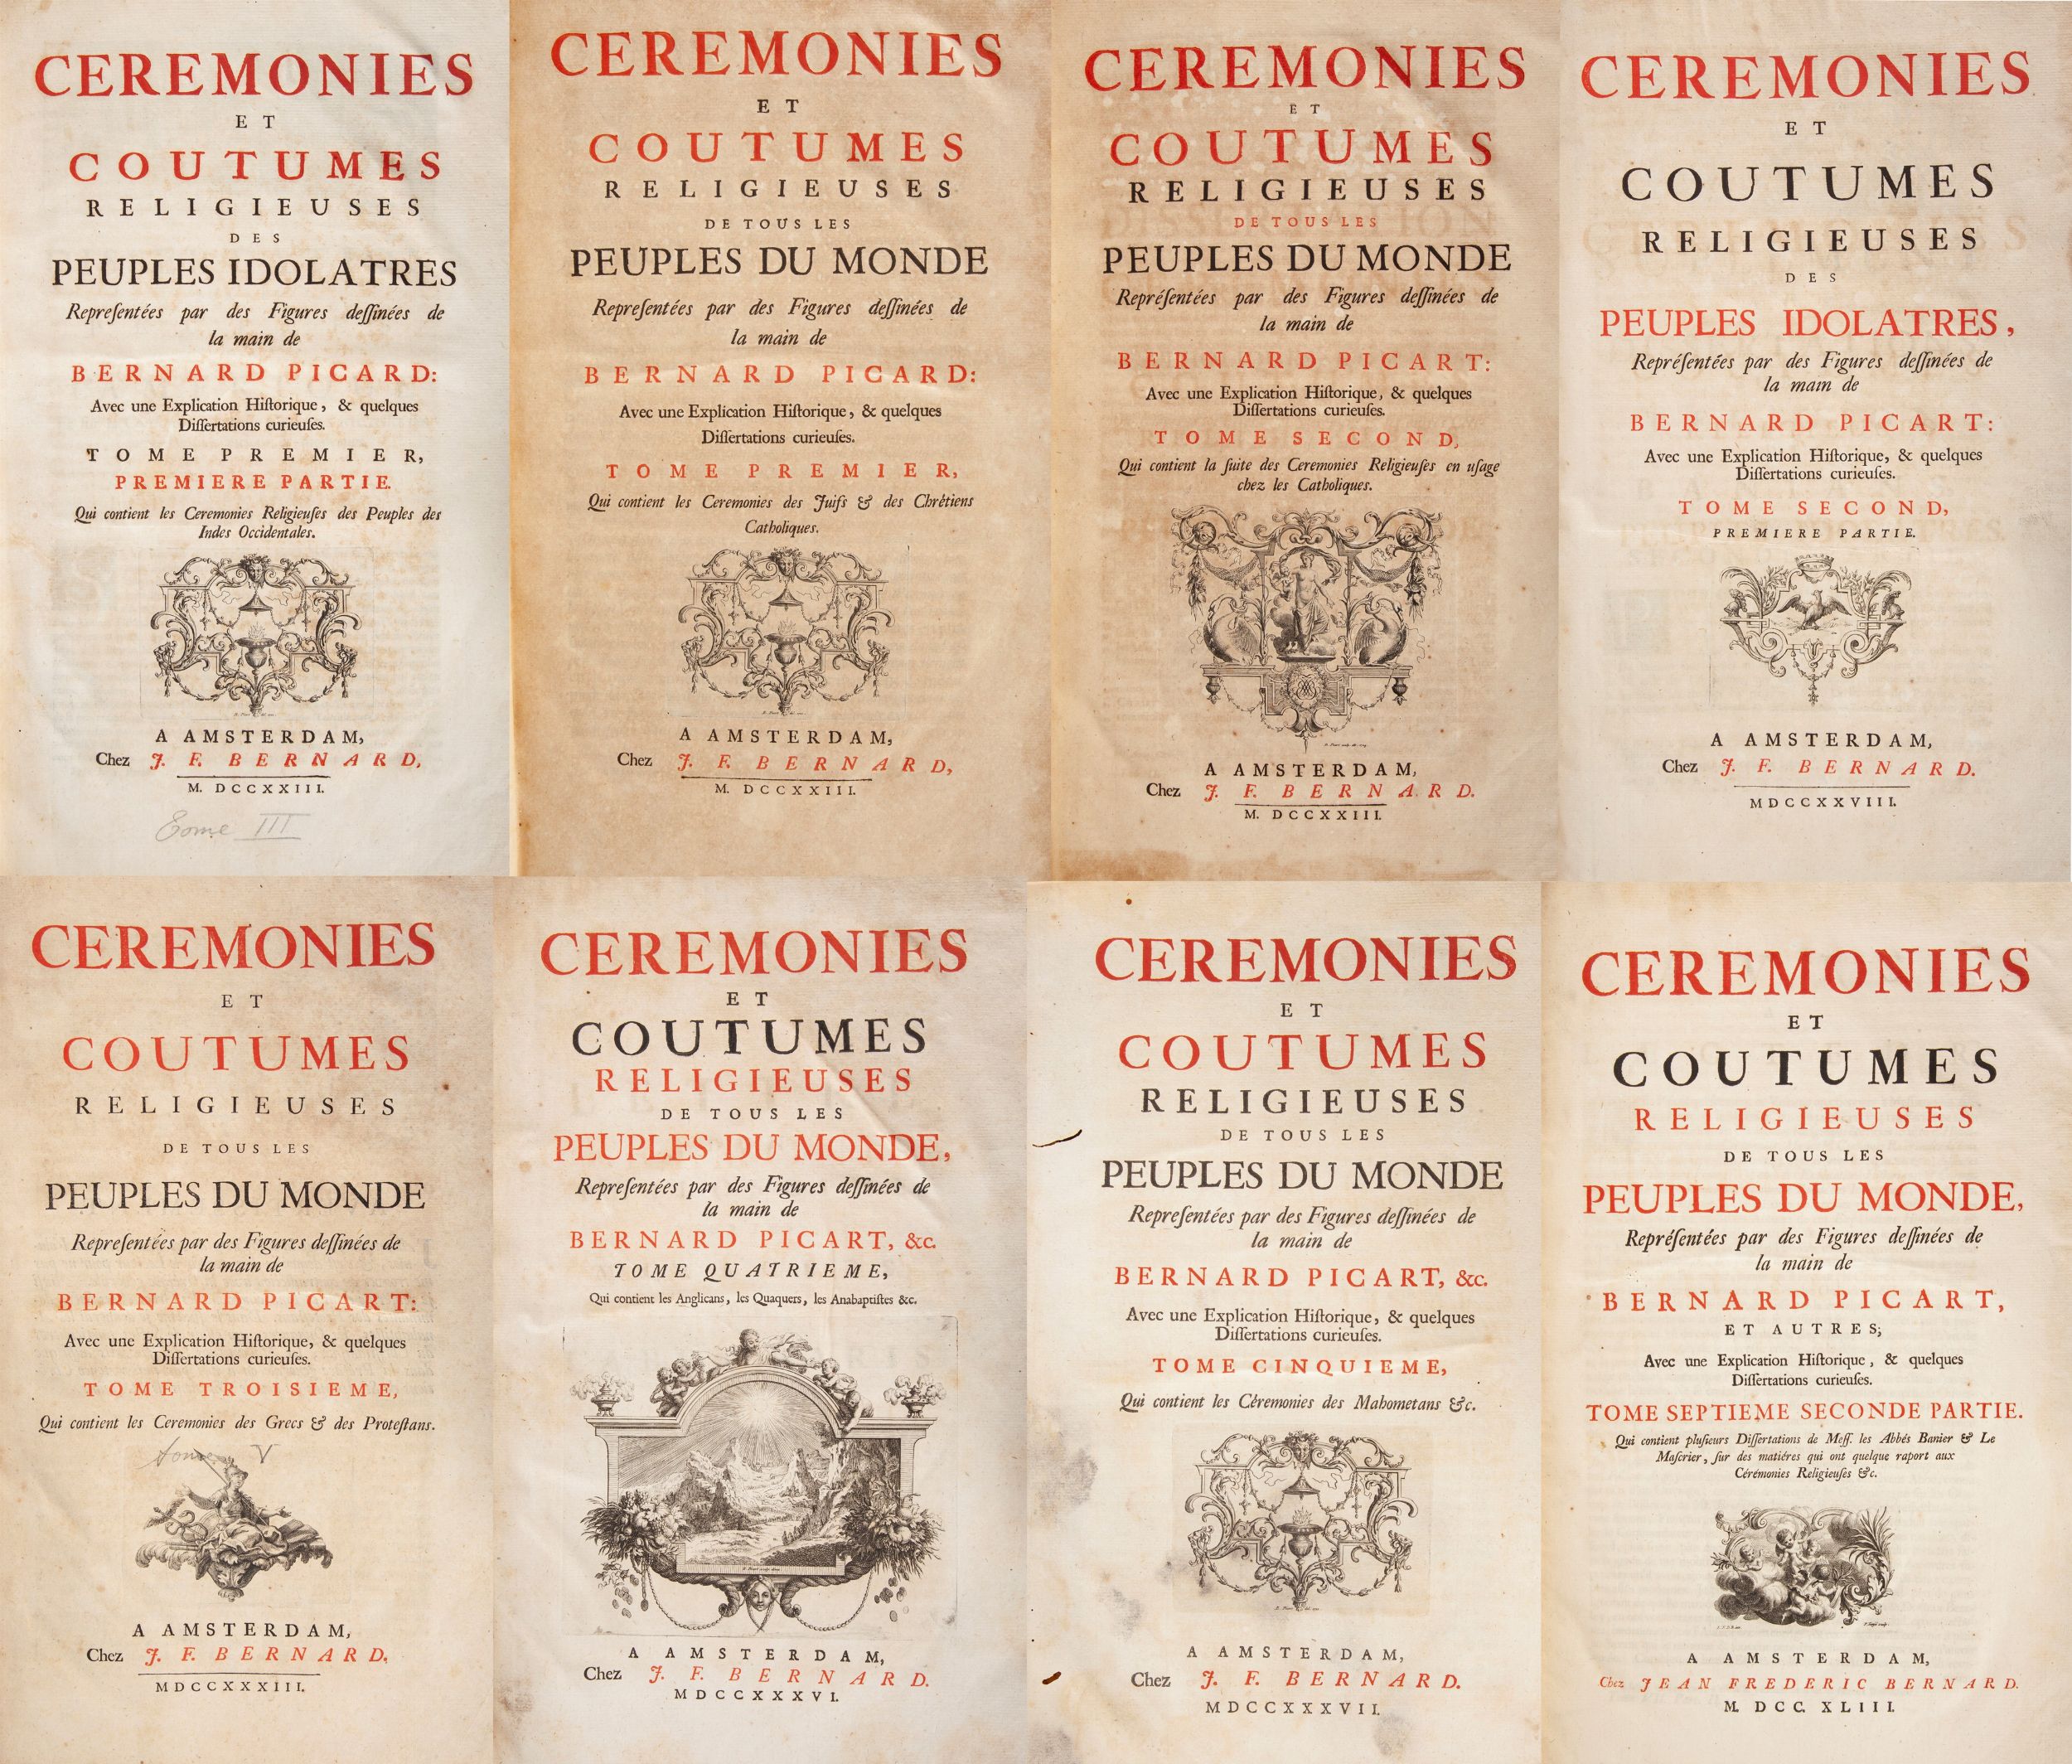 CEREMONIES
ET
COUTUMES
RELIGIEUSES
DES
PEUPLES IDOLATRES
Repreſentées par des Figures deſſinées de
la main de
BERNARD PICARD:
Avec une Explication Hiſtorique, & quelques
Diſſertations curieuſes.
TOME PREMIER,
PREMIERE PARTIE.
Qui contient les Ceremonies Religieuſes des Peuples des
Indes Occidentales.
A AMSTERDAM,
Chez J. F. BERNARD,
M. DCCXXIII.
Tome III
CEREMONIES
ET
COUTUMES
RELIGIEUSES
DE TOUS LES
PEUPLES DU MONDE
Repreſentées par des Figures deſſinées de
la main de
BERNARD PICARD:
Avec une Explication Hiſtorique, & quelques
Diſſertations curieuſes.
TOME PREMIER,
Qui contient les Ceremonies des Juifs & des Chrétiens
Catholiques.
A AMSTERDAM,
Chez J. F. BERNARD,
M. DCCXXIII.
CEREMONIES
ET
COUTUMES
RELIGIEUSES
DE TOUS LES
PEUPLES DU MONDE
Repréſentées par des Figures deſſinées de
la main de
BERNARD PICART:
Avec une Explication Hiſtorique, & quelques
Diſſertations curieuſes.
TOME SECOND,
Qui contient la ſuite des Ceremonies Religieuſes en uſage
chez les Catholiques.
A AMSTERDAM,
Chez J. F. BERNARD.
M. DCCXXIII.
CEREMONIES
ET
COUTUMES
RELIGIEUSES
DES
PEUPLES IDOLATRES,
Repréſentées par des Figures deſſinées de
la main de
BERNARD PICART:
Avec une Explication Hiſtorique, & quelques
Diſſertations curieuſes.
TOME SECOND,
PREMIERE PARTIE.
A AMSTERDAM,
Chez J. F. BERNARD.
MDCCXXVIII.
CEREMONIES
ET
COUTUMES
RELIGIEUSES
DE TOUS LES
PEUPLES DU MONDE
Repreſentées par des Figures deſſinées de
la main de
BERNARD PICART:
Avec une Explication Hiſtorique, & quelques
Diſſertations curieuſes.
TOME TROISIEME,
Qui contient les Ceremonies des Grecs & des Proteſtans.
tome V
A AMSTERDAM,
Chez J. F. BERNARD,
MDCCXXXIII.
CEREMONIES
ET
COUTUMES
RELIGIEUSES
DE TOUS LES
PEUPLES DU MONDE,
Repreſentées par des Figures deſſinées de
la main de
BERNARD PICART, &c.
TOME QUATRIEME,
Qui contient les Anglicans, les Quaquers, les Anabaptiſtes &c.
A AMSTERDAM,
Chez J. F. BERNARD.
MDCCXXXVI.
CEREMONIES
ET
COUTUMES
RELIGIEUSES
DE TOUS LES
PEUPLES DU MONDE
Repreſentées par des Figures deſſinées de
la main de
BERNARD PICART, &c.
Avec une Explication Hiſtorique, & quelques
Diſſertations curieuſes.
TOME CINQUIEME,
Qui contient les Céremonies des Mahometans &c.
A AMSTERDAM,
Chez J. F. BERNARD.
MDCCXXXVII.
CEREMONIES
ET
COUTUMES
RELIGIEUSES
DE TOUS LES
PEUPLES DU MONDE,
Repréſentées par des Figures deſſinées de
la main de
BERNARD PICART,
ET AUTRES;
Avec une Explication Hiſtorique, & quelques
Diſſertations curieuſes.
TOME SEPTIEME SECONDE PARTIE.
Qui contient pluſieurs Diſſertations de Meſſ. les Abbés Banier & Le
Maſcrier, ſur des matiéres qui ont quelque raport aux
Cérémonies Religieuſes &c.
A AMSTERDAM,
Chez JEAN FREDERIC BERNARD.
M. DCC. XLIII.